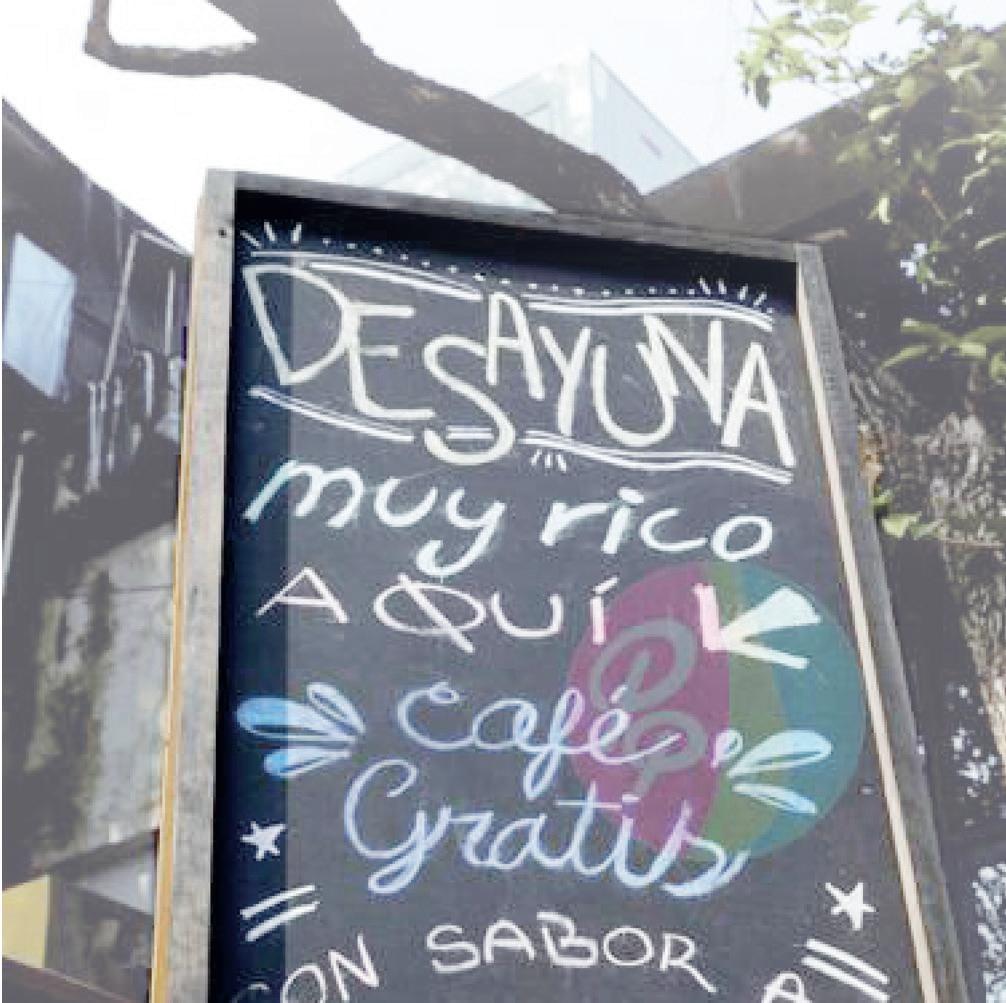 DESAYUNA
muy rico
AQUÍ
café
Gratis
CON SABOR A